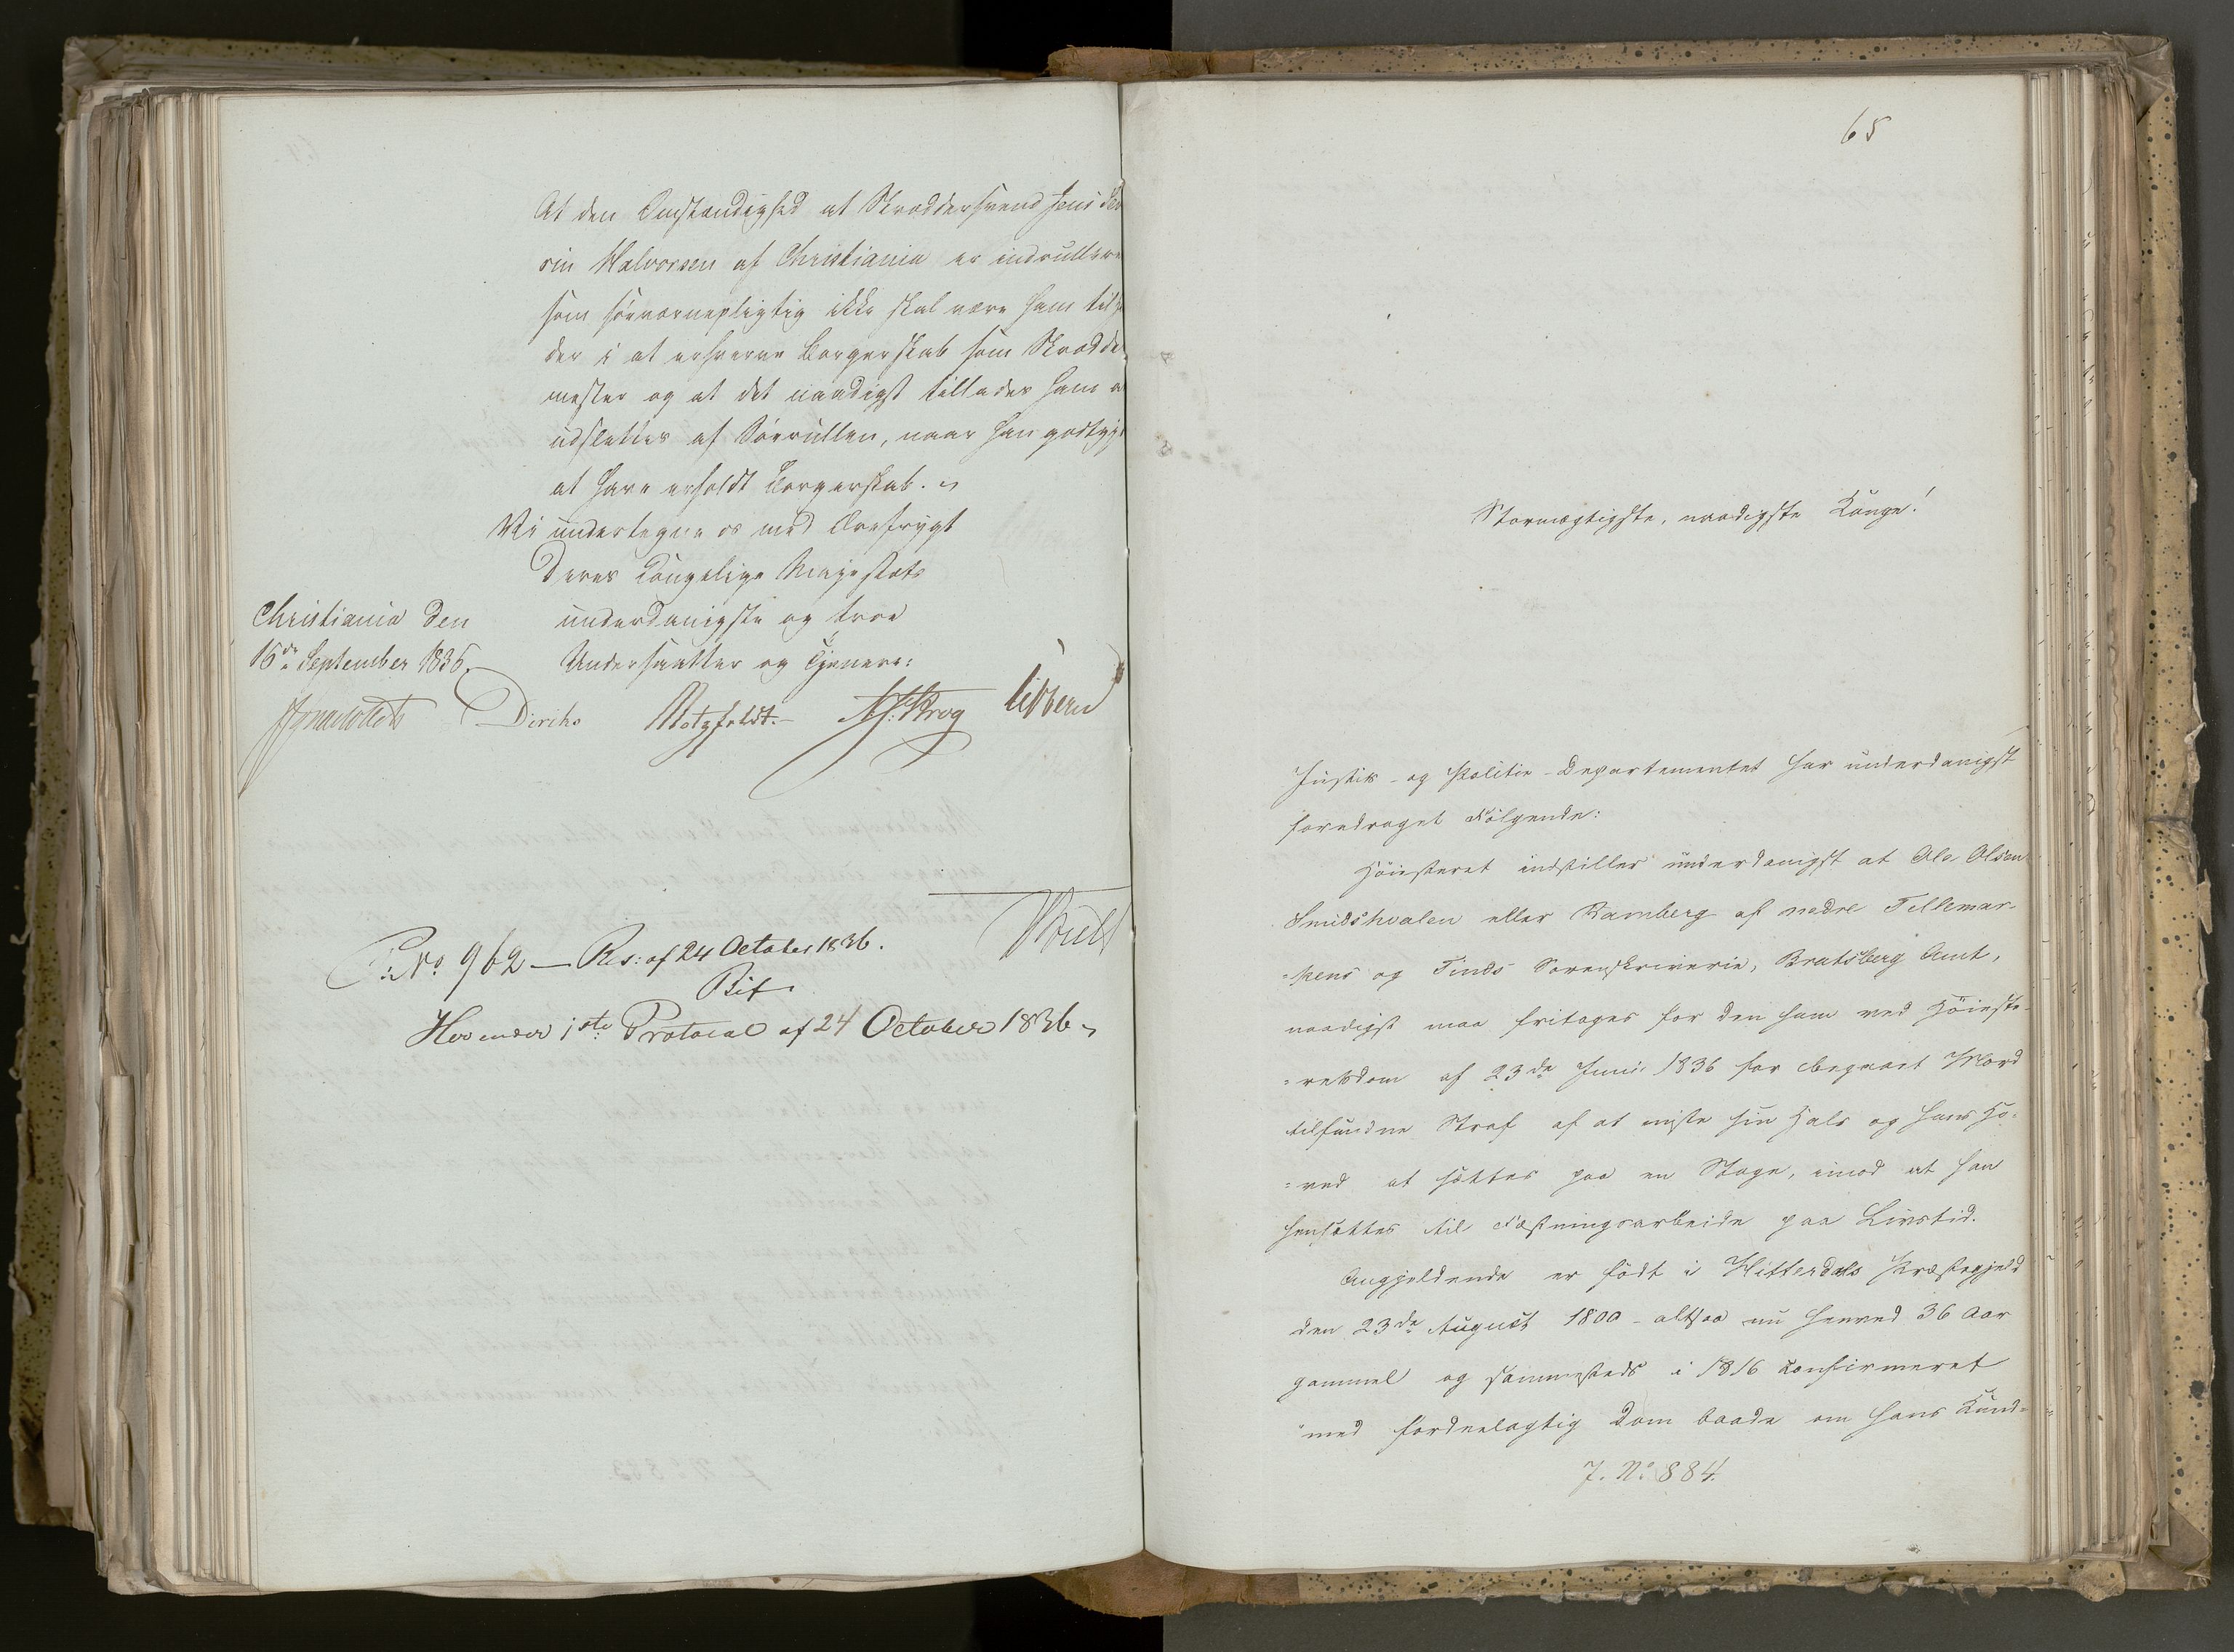 At den Omstændighed at Skræddersvend Jens Se
rin Halvorsen af Christiania er indrullere
som søeværnepligtig ikke skal være ham til
der i at erhverve Borgerskab som Skrædde
mester og at det naadigst tillades ham a
udslettes af Søerullen, naar han godtgjø
at have erholdt Borgerskab.
Vi undertegne os med Ærefrygt
Deres Kongelige Majestæts
Christiania den underdanigste og troe
16de September 1836. Undersaatter og Tjenere:
Diriks Motzfeldt. Krog Sibbern
No 962 — Res: af 24 October 1836.
Herunder 1ste Protocol af 24 October 1836.
65
Stormægtigste, naadigste Konge!
Justits- og Politie-Departementet har underdanigst
foredraget Følgende:
Høiesteret indstiller underdanigst at Ole Olsen
Smidshvalen eller Bamberg af nedre Tellemar-
=kens og Tinds Sorenskriverie, Bratsberg Amt,
naadigst maa fritages for den ham ved Høieste-
=retsdom af 23de Juni 1836 for begaaet Mord
tilfundne Straf af at miste sin Hals og hans Ho-
=ved at sættes paa en Stage, imod at han
hensættes til Fæstningsarbeide paa Livstid.
Angjeldende er født i Hitterdals Præstegjeld
den 23de August 1800 - altsaa nu henved 36 Aar
gammel og sammesteds i 1816 confirmeret
"med fordeelagtig Dom baade om hans Kund-
J. No 884.